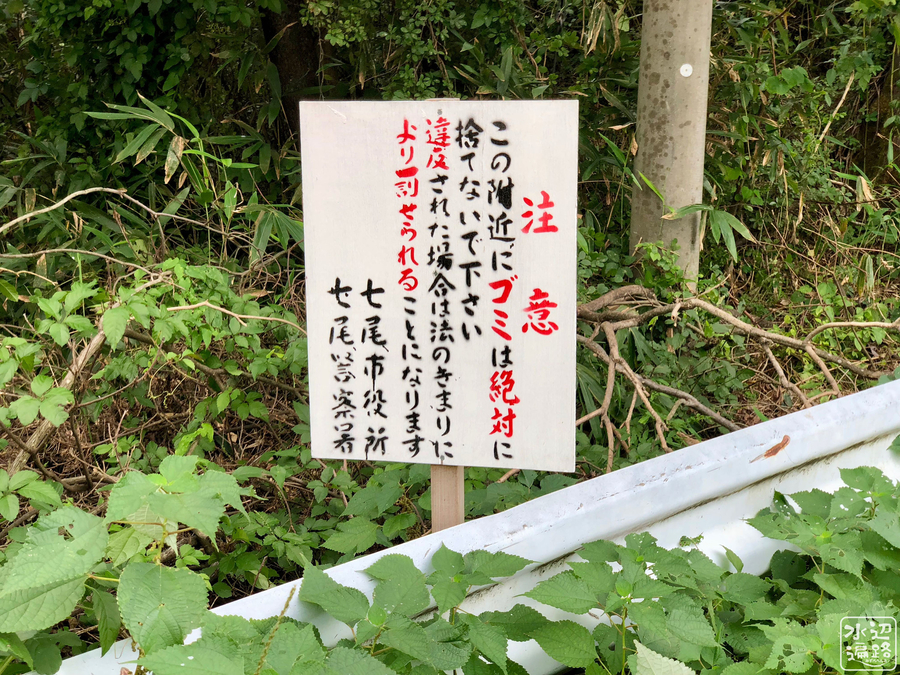 注意
この附近にゴミは絶対に
捨てないで下さい
違反された場合は法のきまりに
より罰せられることになります
七尾市役所
七尾警察署
水辺
遍路